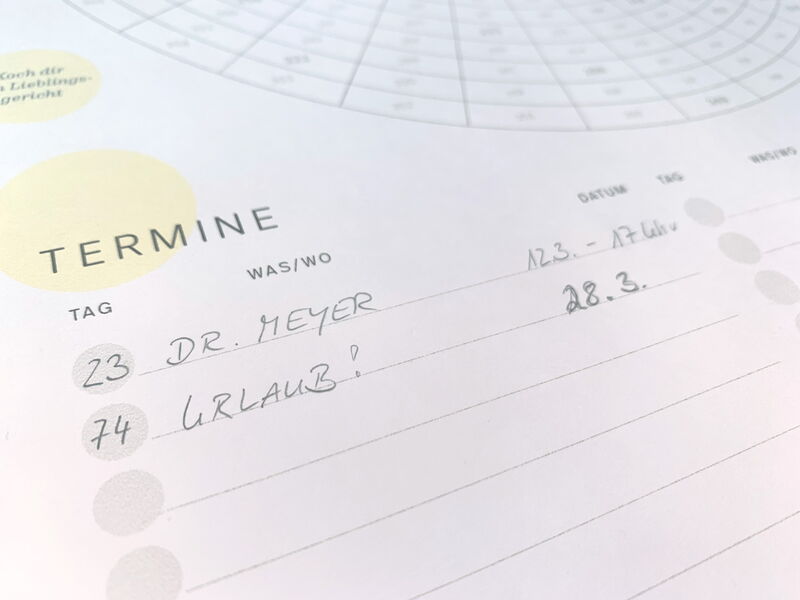 Koch dir
Lieblings-
gericht
TERMINE
TAG WAS/WO DATUM
23 DR. MEYER 12.3. - 17 Uhr
74 URLAUB! 28.3.
TAG WAS/WO